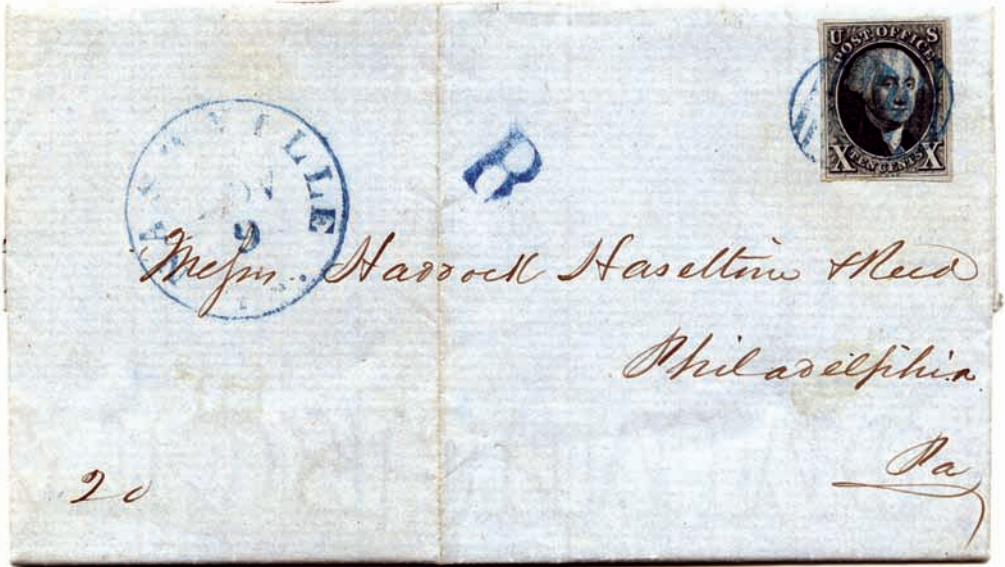 U S
POST OFFICE
X TEN CENTS X
9
B
Messrs. Haddock Haseltine & Reed
Philadelphia
Pa
20